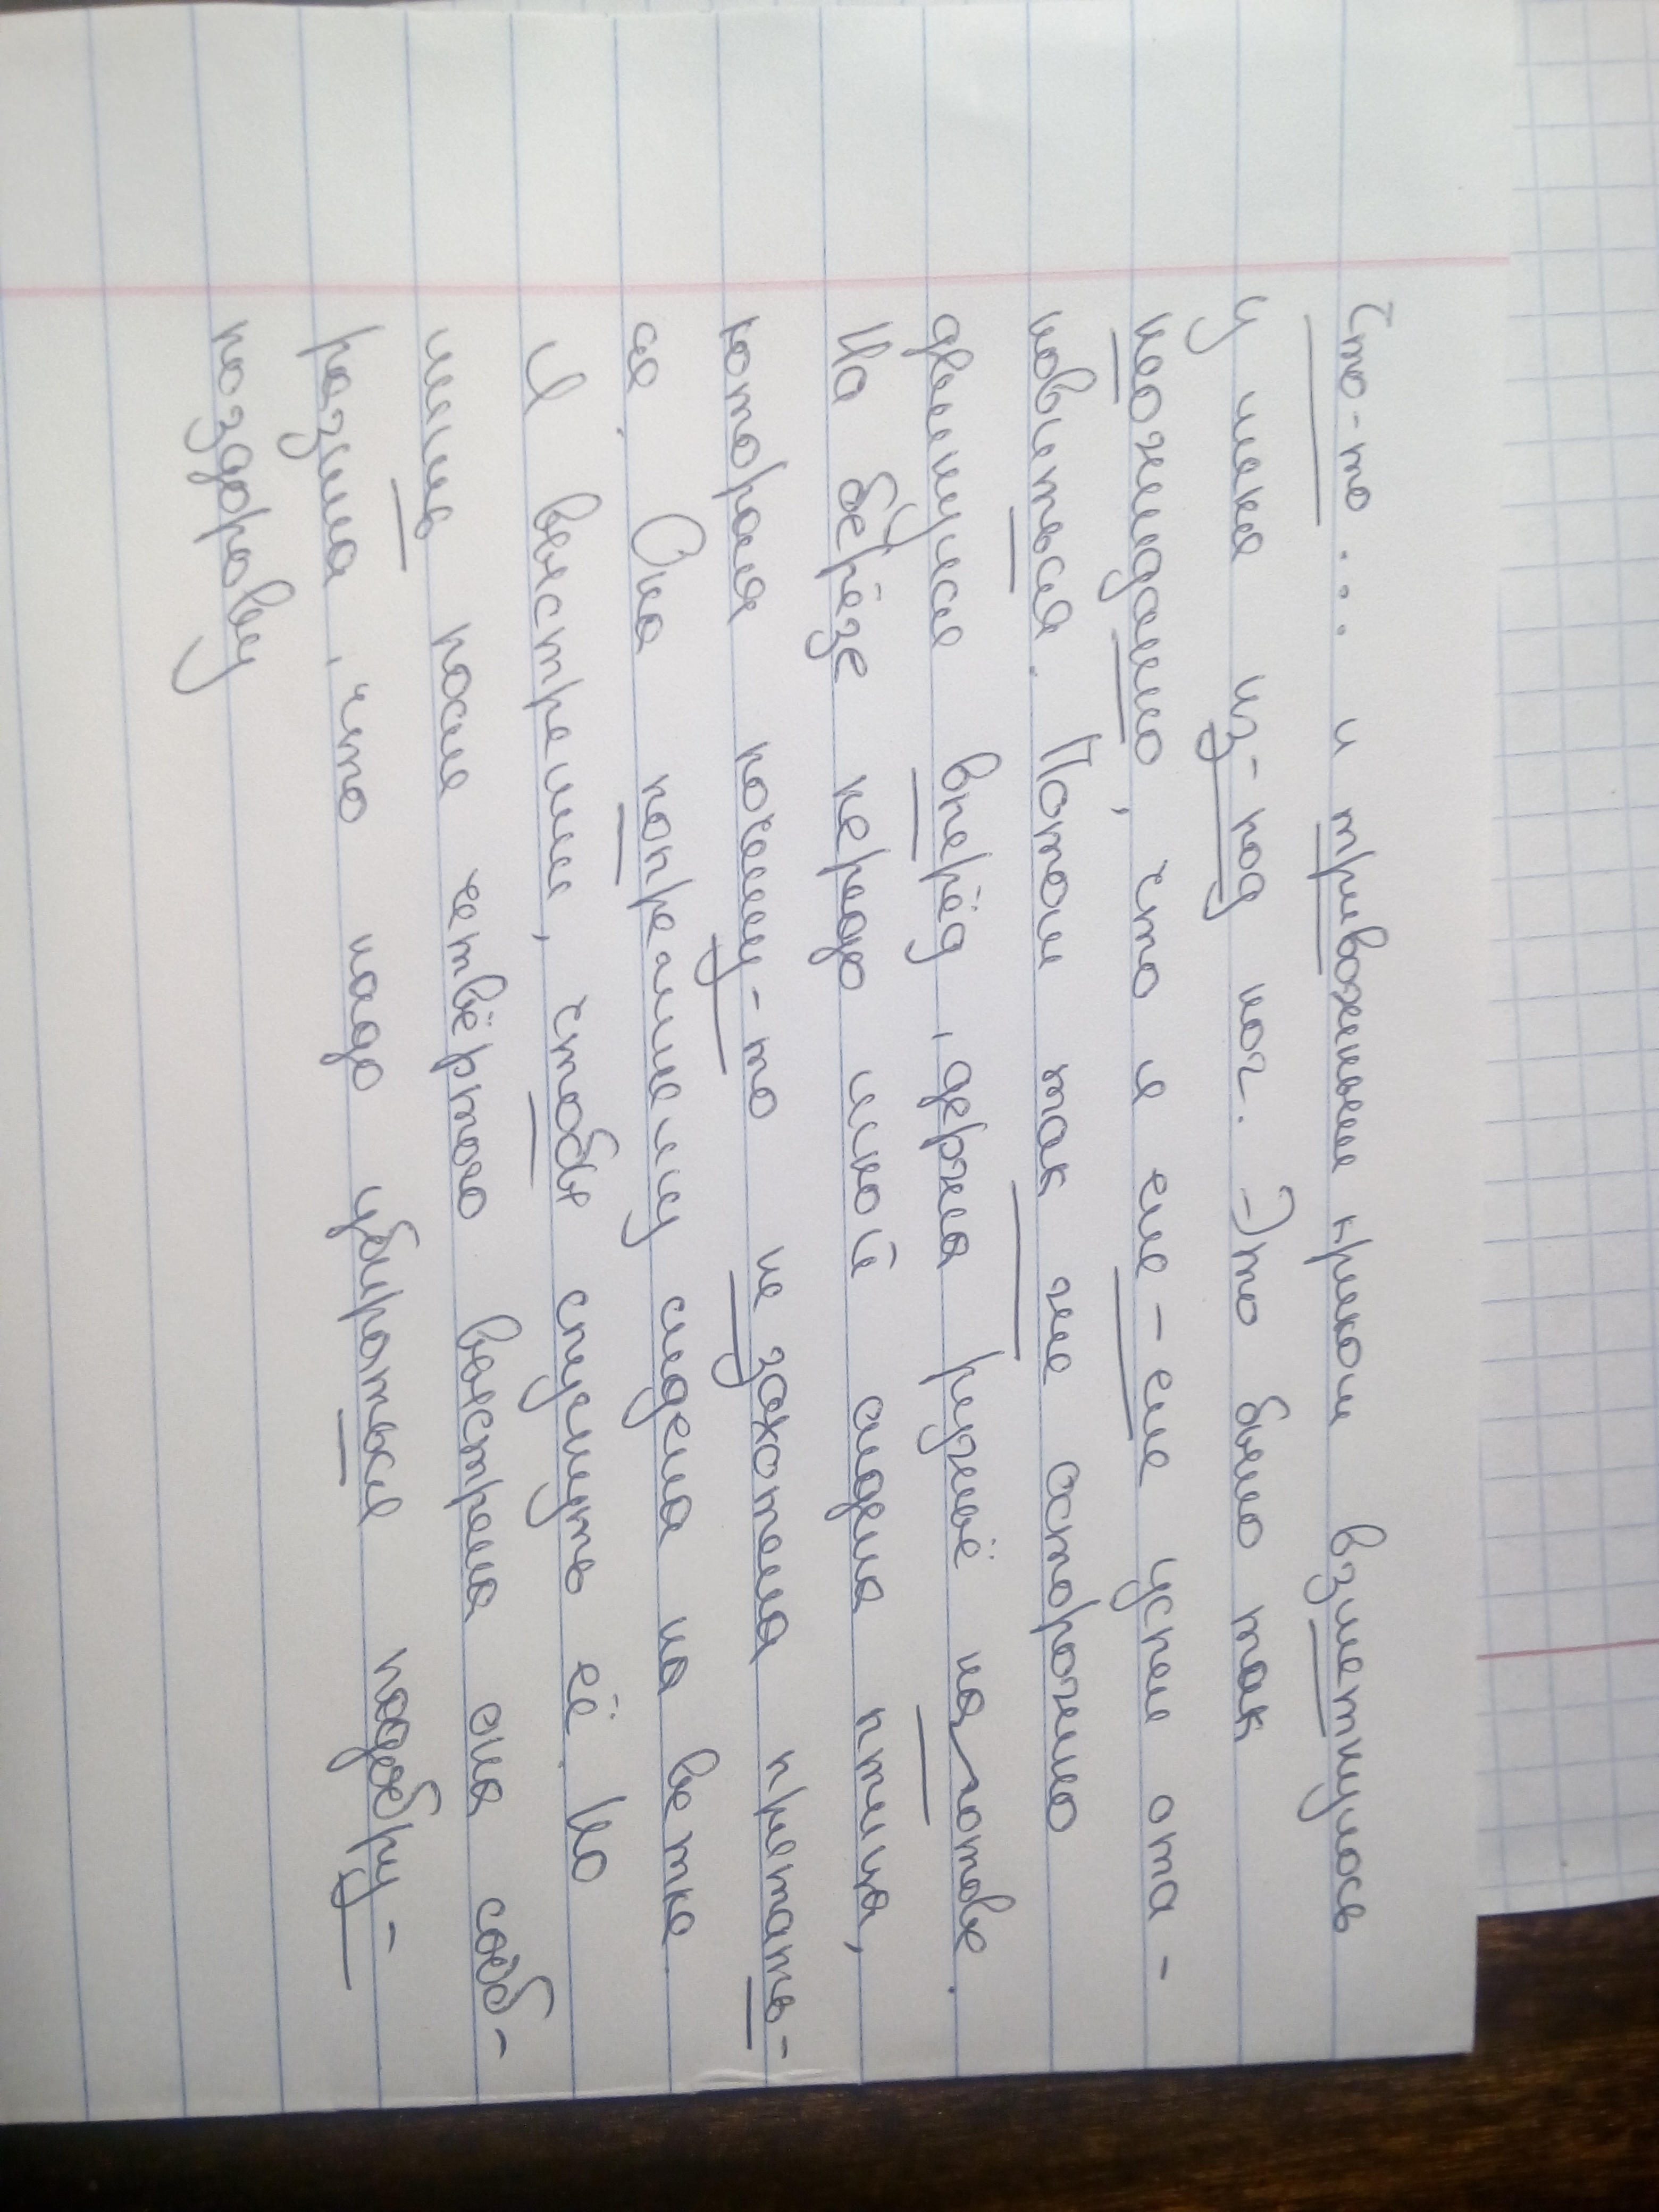 Что-то... и тривожным криком взметнулось
у меня из-под ног. Это было так
неожиданно, что я еле-еле успел ота-
новиться. Потом так же осторожно
двинулся вперёд, держа ружьё на готове.
На берёзе передо мной сидела птица,
которая почему-то не захотела прятать-
ся. Она попрежнему сидела на ветке.
Я выстрелил, чтобы спугнуть её. Но
лишь после четвёртого выстрела она сооб-
разила, что надо убираться подобру-
поздорову